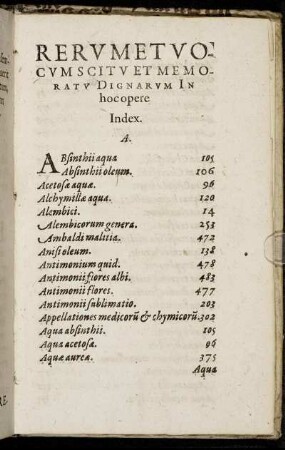 RERVM ET VO-
CVM SCITV ET MEMO-
RATV DIGNARVM IN
hoc opere
Index.
A.
ABsinthii aqua 105
Absinthii oleum. 106
Acetosæ aquæ. 96
Alchymillæ aqua. 120
Alembici. 14
Alembicorum genera. 253
Ambaldi malitia. 472
Anisi oleum. 138
Antimonium quid. 478
Antimonii flores albi. 483
Antimonii flores. 477
Antimonii sublimatio. 203
Appellationes medicorū & chymicorū. 302
Aqua absinthii. 105
Aqua acetosæ. 96
Aquæ aureæ. 375
Aqua